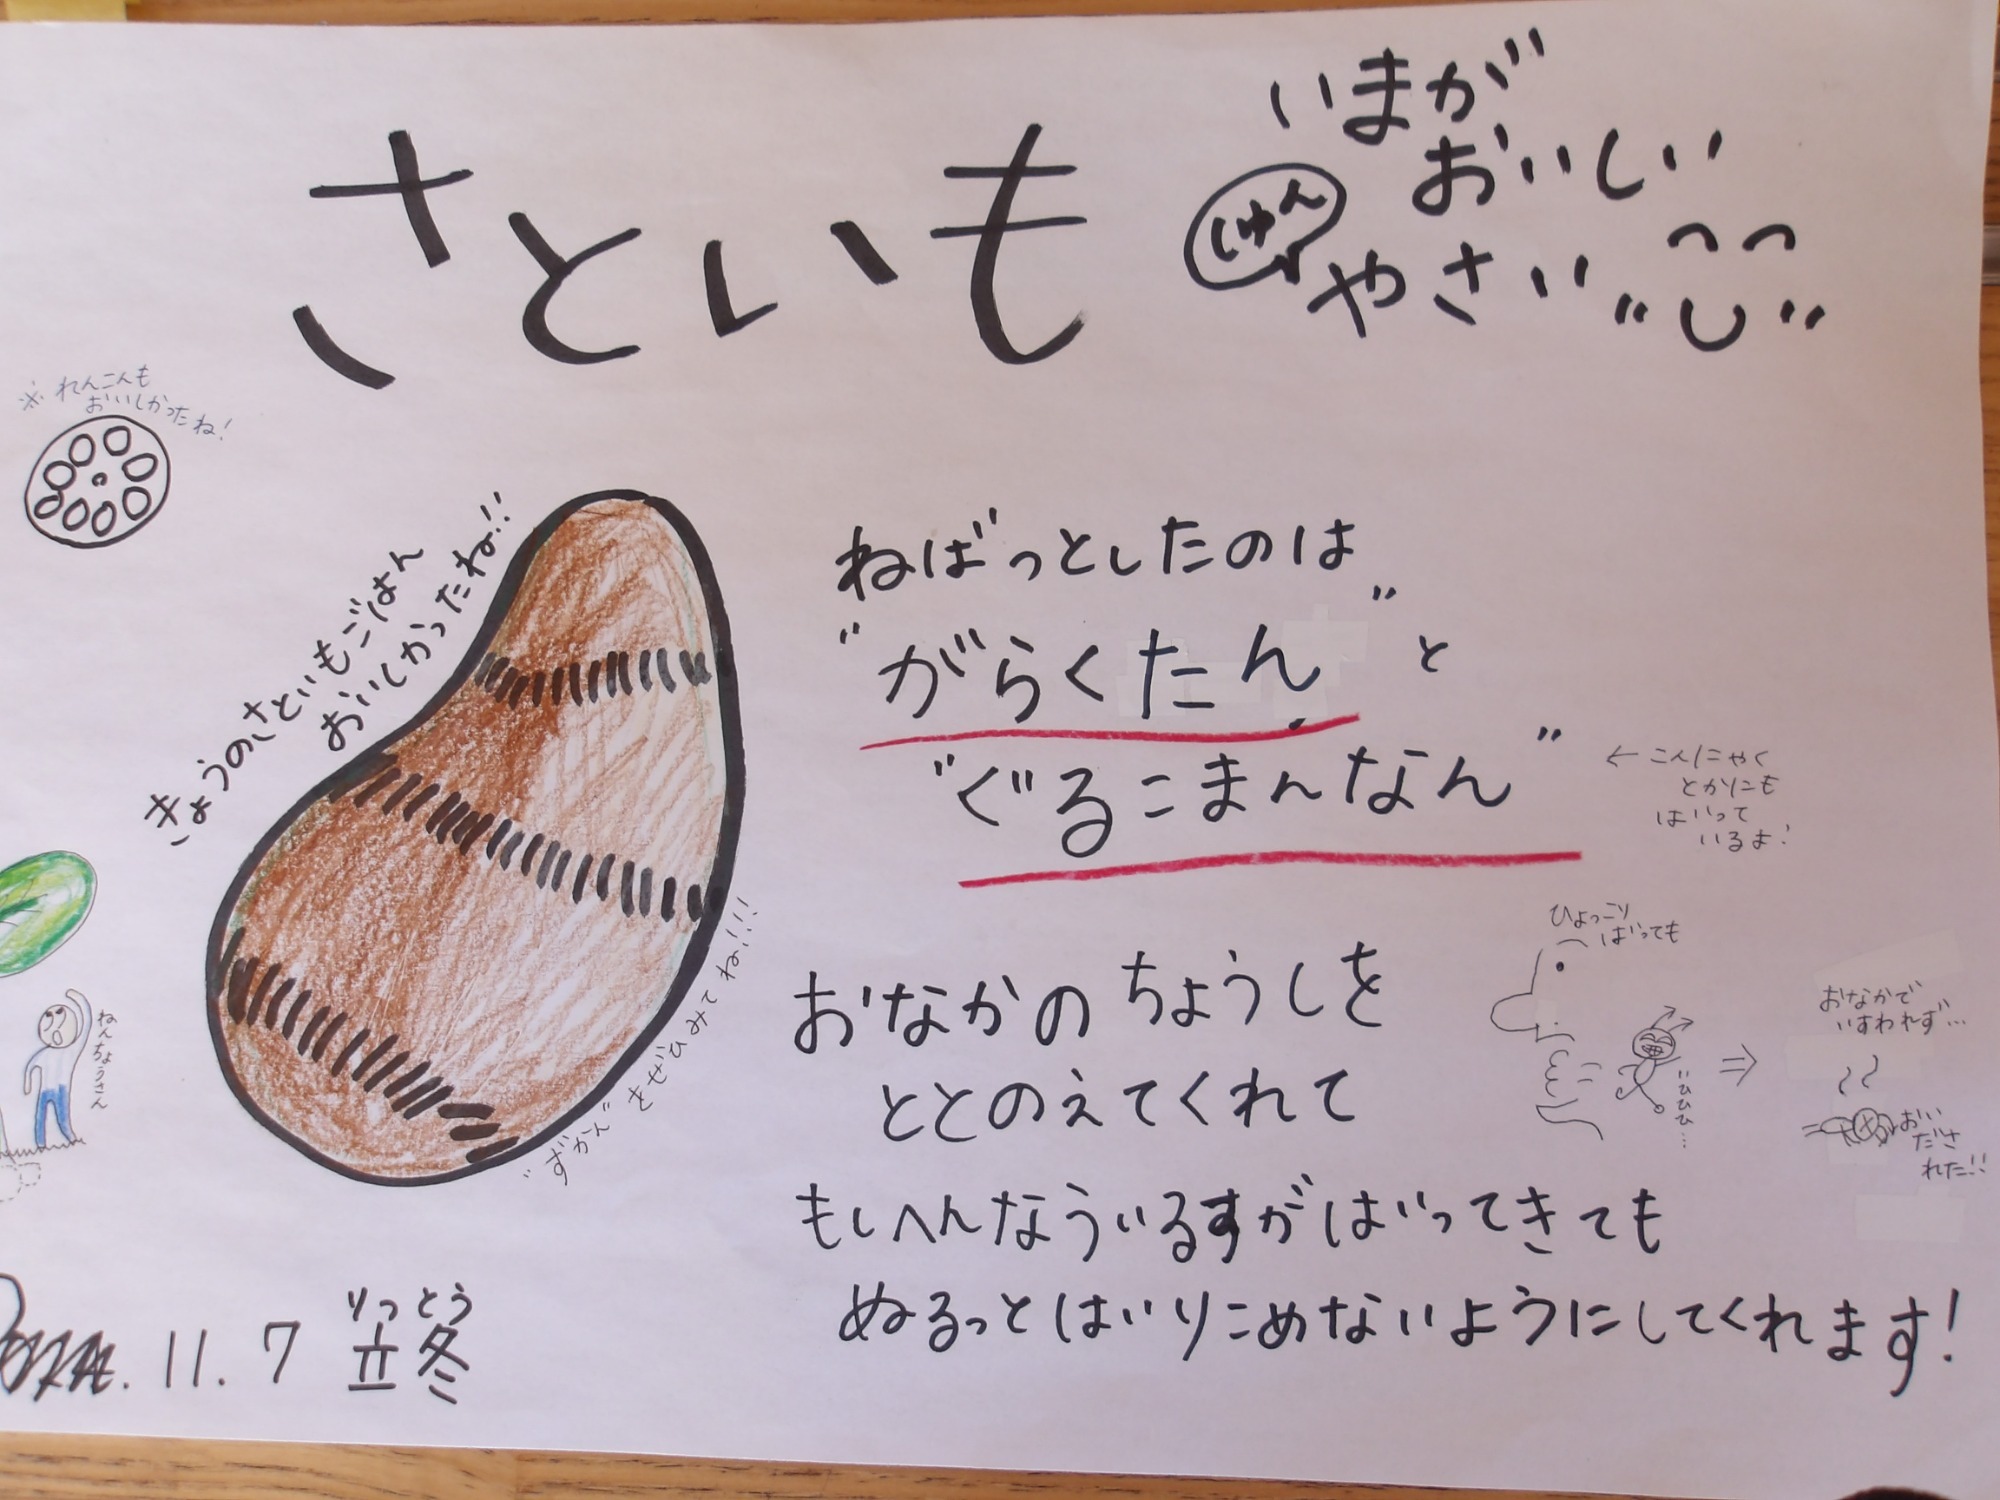 さといも
いまが
おいしい
しゅん
やさい
※れんこんも
おいしかったね!
きょうのさといもごはん
おいしかったね!!
ねばっとしたのは
"がらくたん"と
"ぐるこまんなん"
←こんにゃく
とかにも
はいって
いるよ!
おなかのちょうしを
ととのえてくれて
ひょっこり
はいっても
ひひひ…
⇒
おなかで
いすわれず…
おい
ださ
れた!!
もしへんなういるすがはいってきても
ぬるっとはいりこめないようにしてくれます!
"ずかん"をぜひみてね!!!
ねんちょうさん
11.7
りっとう
立冬